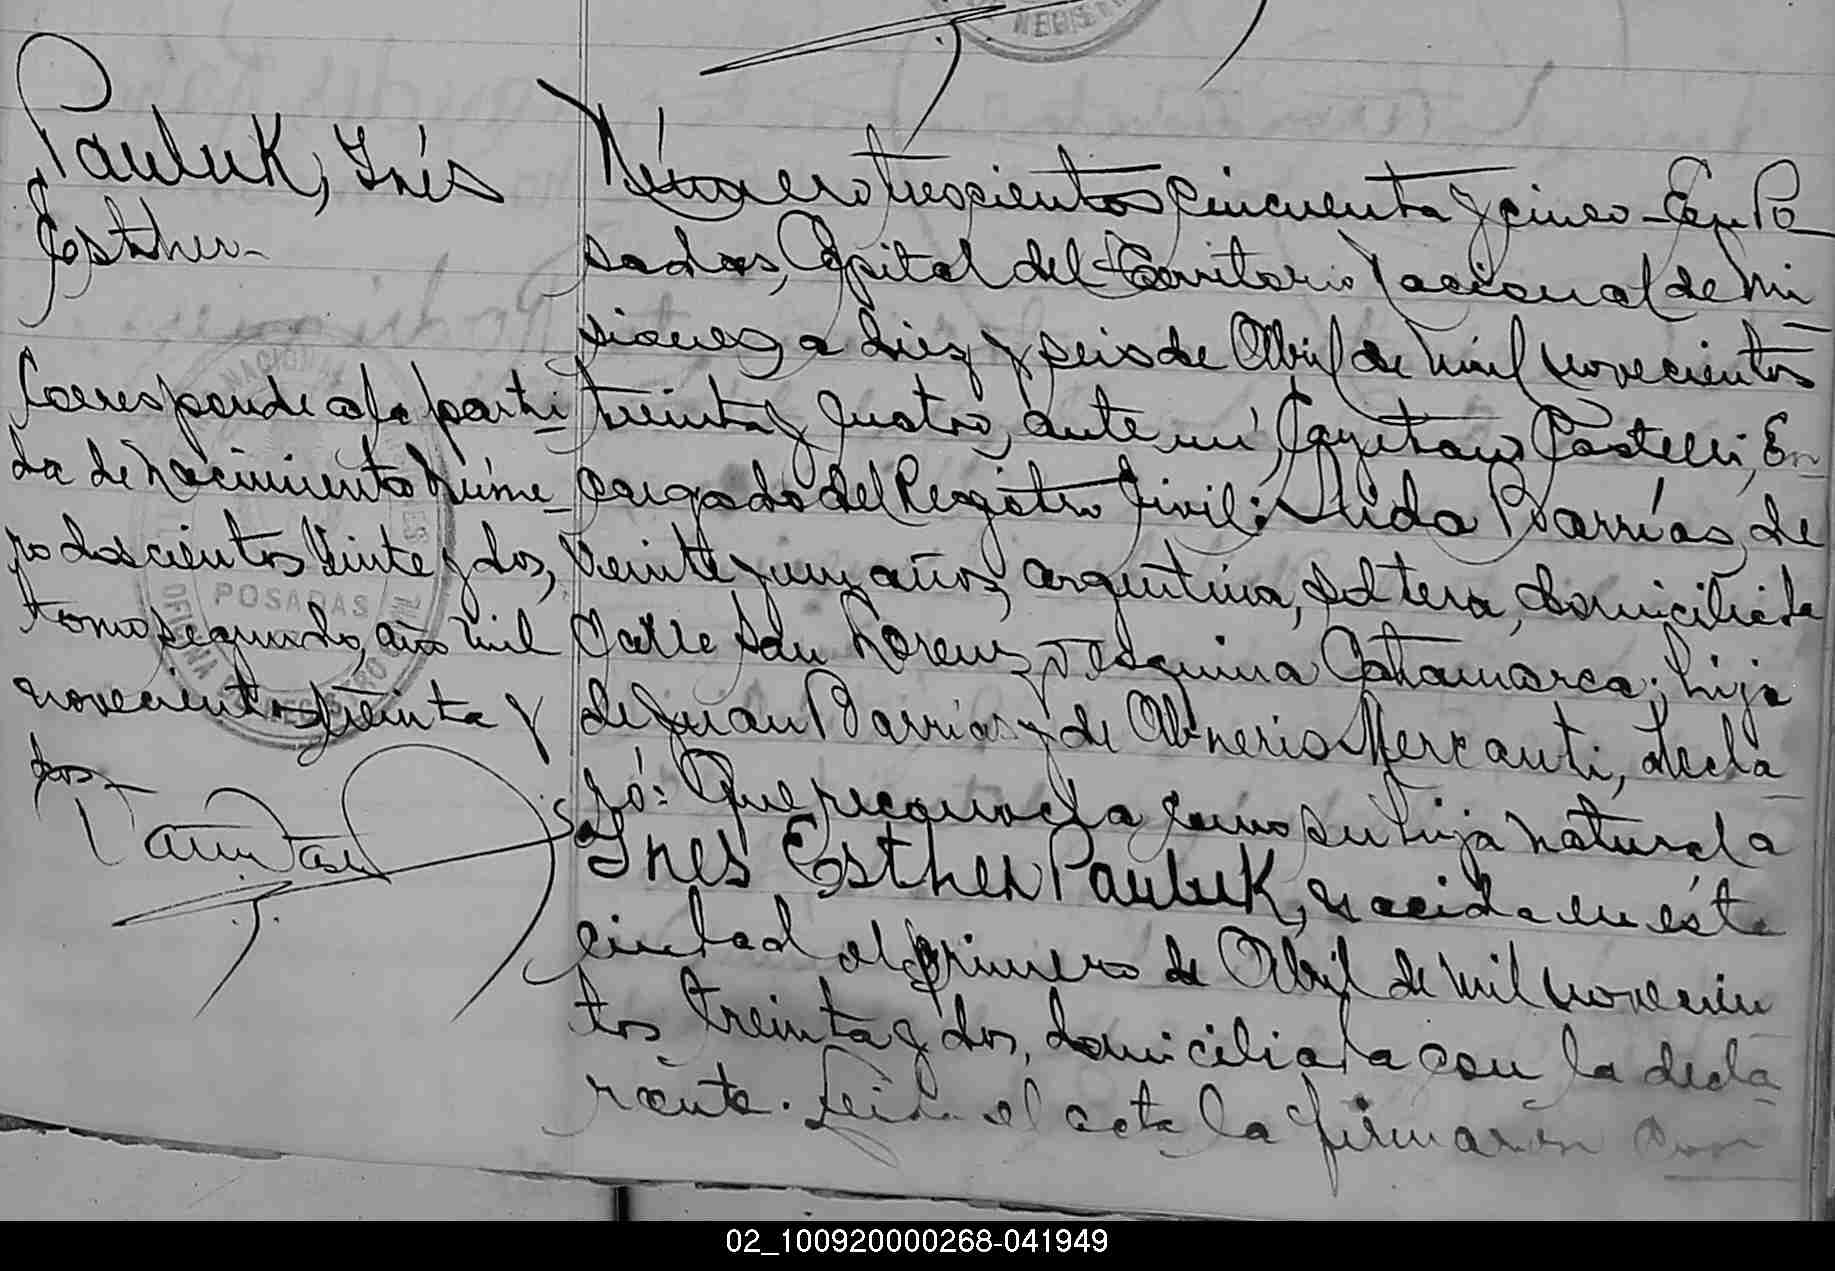 Pauluk, Inés
Esther-
Corresponde a la parti-
da de Nacimiento Núme-
ro doscientos veinte y dos,
tomo segundo, año mil
novecientos treinta y
dos-
Número trescientos cincuenta y cinco - En Po-
sadas, Capital del Territorio Nacional de Mi-
siones, a diez y seis de Abril de mil novecientos
treinta y cuatro, ante mí, Cayetano Castelli, En-
cargado del Registro Civil: Aida Barrías, de
veinte y un años, argentina, soltera, domiciliada
calle San Lorenzo esquina Catamarca; hija
de Juan Barrías y de Abneria Mercanti, decla-
ró: Que reconocía como su hija natural a
Inés Esther Pauluk, nacida en ésta
ciudad el primero de Abril de mil novecien
tos treinta y dos, domiciliada con la decla-
rante. Leida el acta la firmaron con
NACIONAL
POSADAS
OFICINA REGISTRO CIVIL
02_100920000268-041949